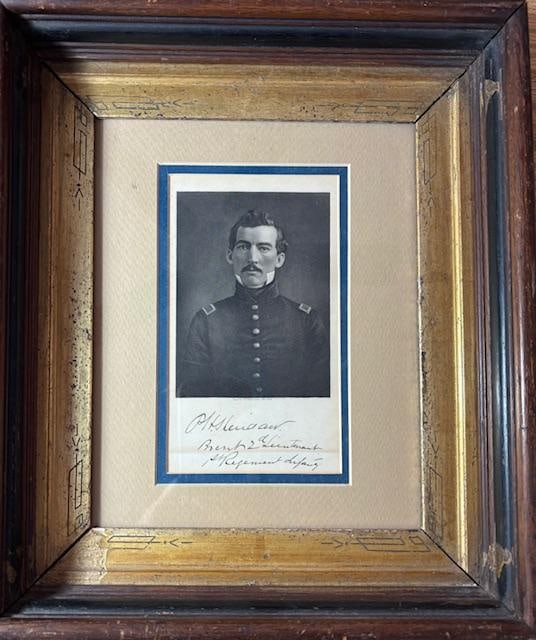 P H Sheridan.
Brevt 2d Lieutenant
1st Regiment Infty